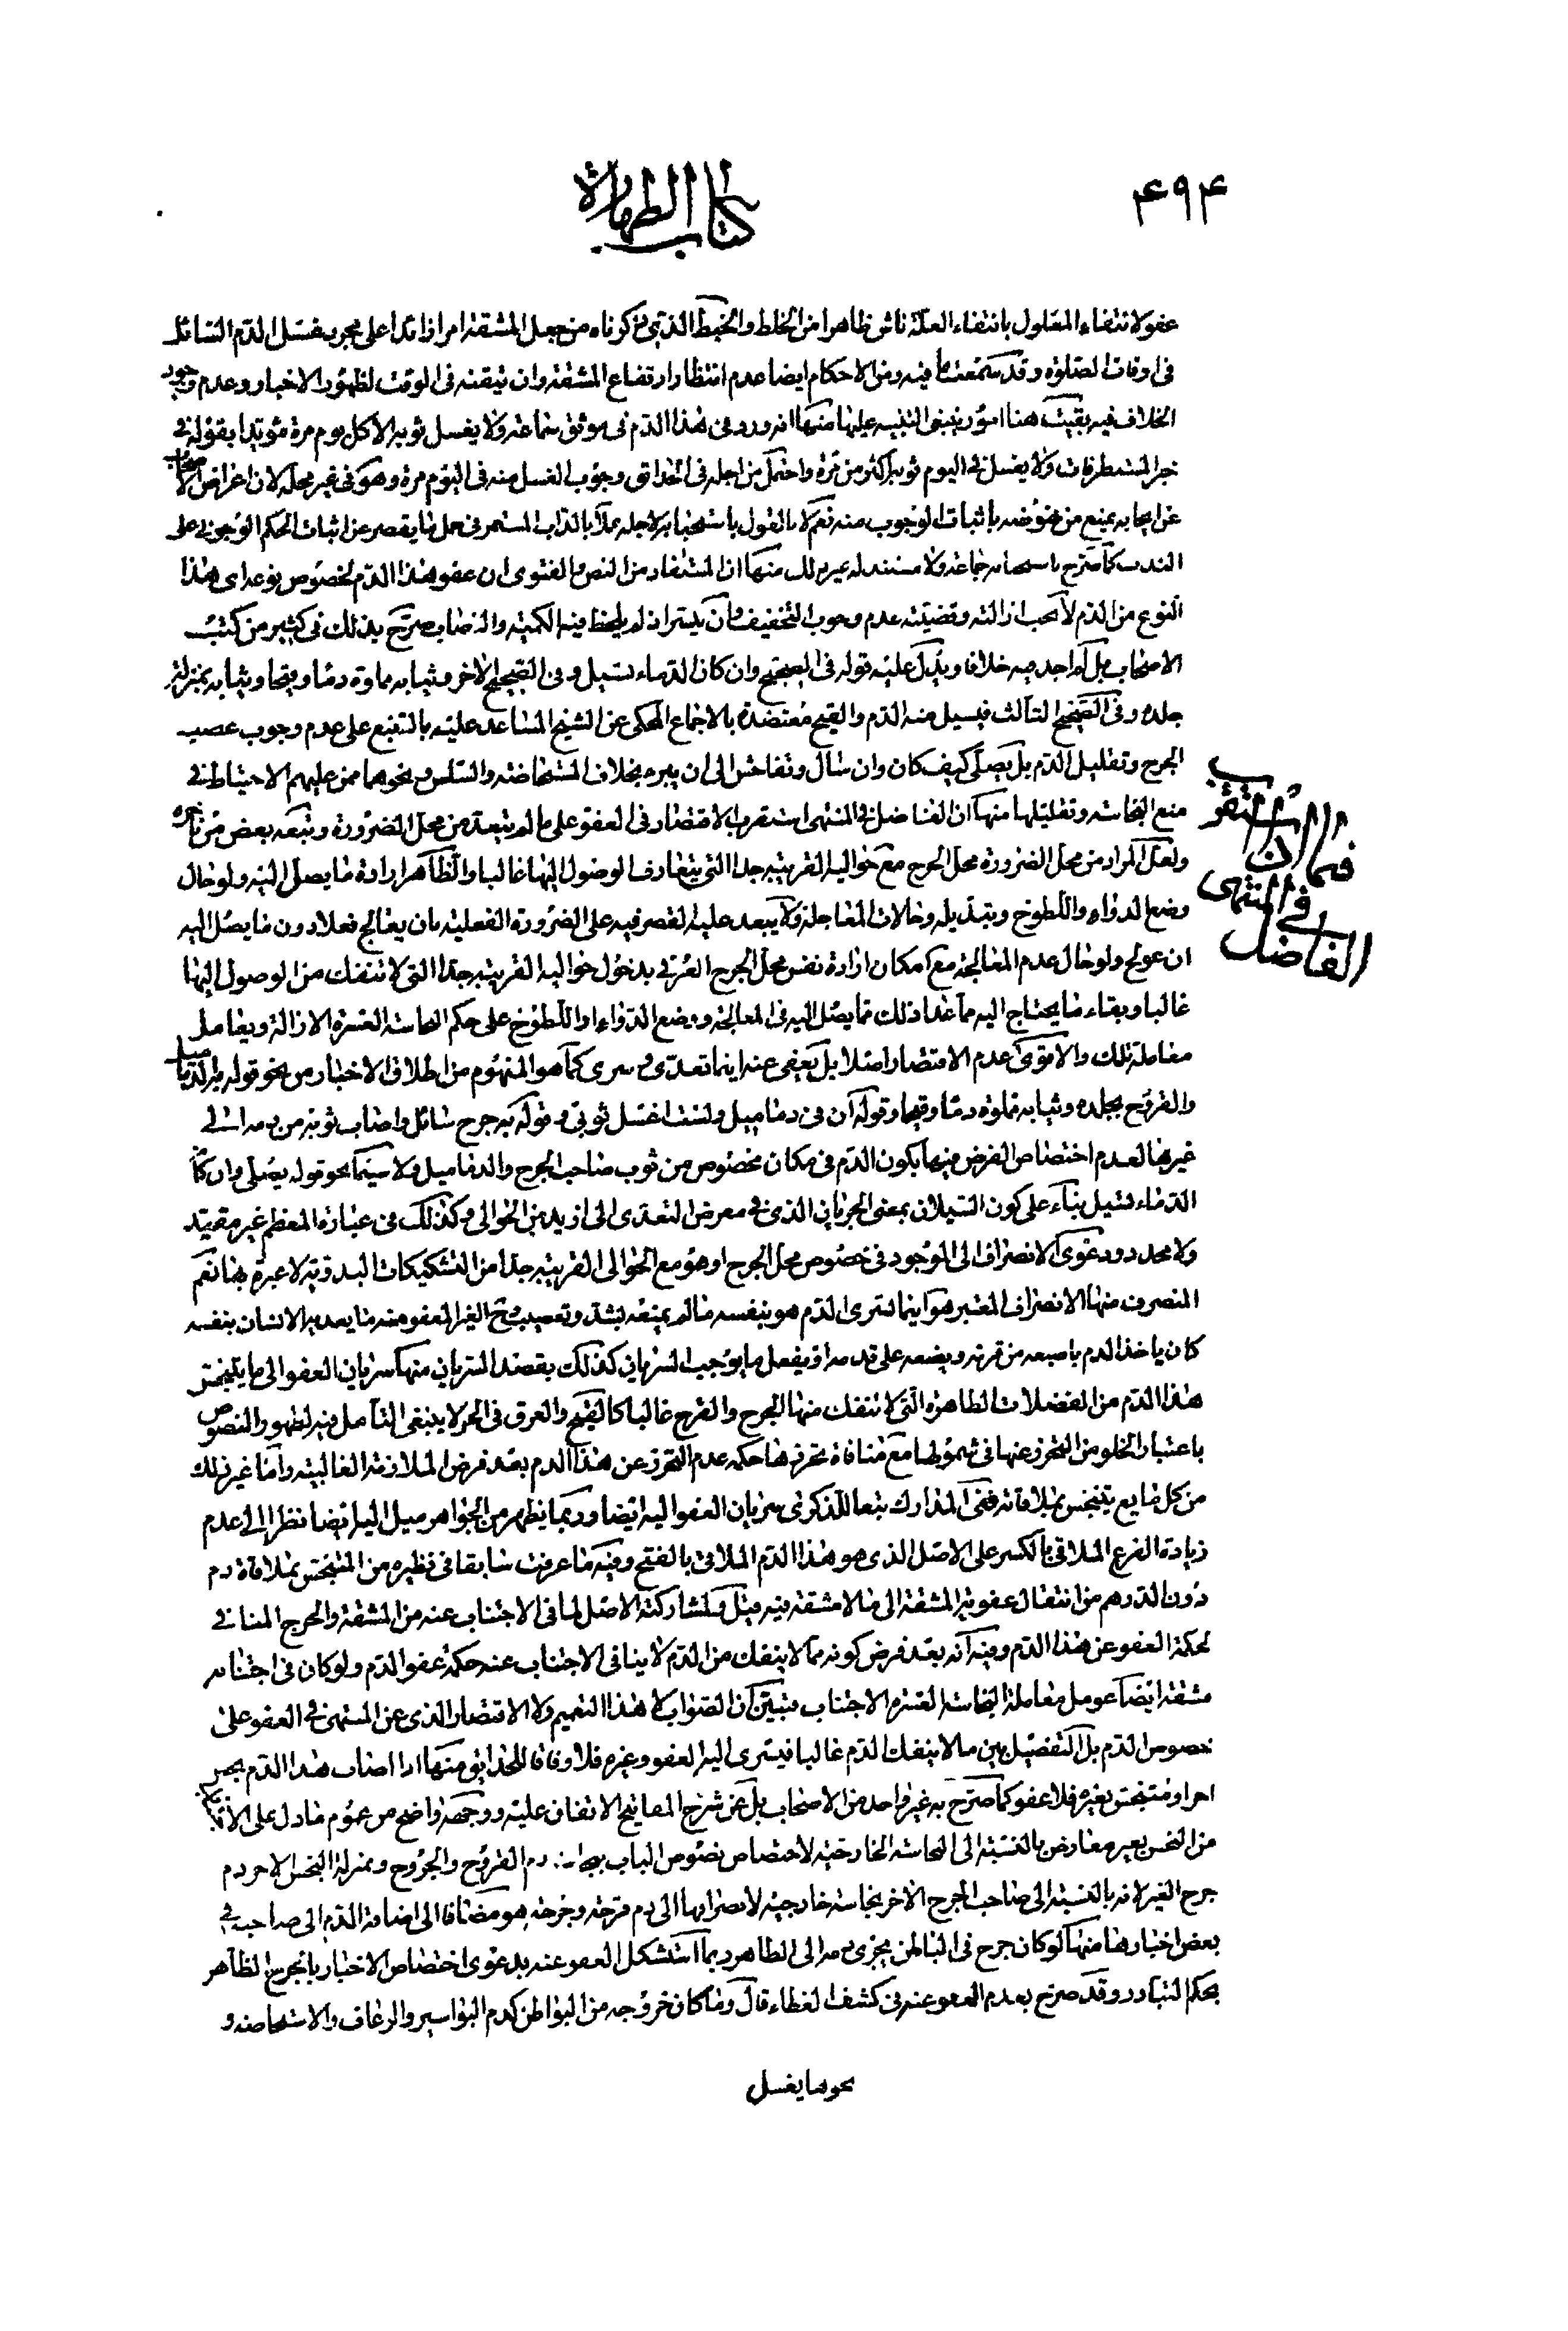 ۴۹۴
كتاب الطهارة
عفو لانتفاء المعلول بانتفاء العلة ناش ظاهرا من الخلط والخبط الذي ذكرناه من جعل المشقة امرا زائدا على مجرد غسل الدم السائل
في اوقات الصلوة وقد سمعت ما فيه ومن الاحكام ايضا عدم انتظار ارتفاع المشقة وان تيقنه في الوقت لظهور الاخبار وعدم وجود
الخلاف فيه بقيت هنا امور ينبغي التنبيه عليها منها انه ورد في هذا الدم في موثق سماعة ولا يغسل ثوبه الا كل يوم مرة مؤيدا بقوله في
خبر المستطرفات ولا يغسل في اليوم ثوبه اكثر من مرة واحتمل من اجله في الحدائق وجوب الغسل منه في اليوم مرة وهو في غير محله لان اعراض الاصحاب
عن ايجابه يمنع من نهوضه باثبات الوجوب منه نعم لا باس بالقول باستحبابه لاجله عملا بالداب المستمر في حمل ما يقصر عن اثبات الحكم الوجوبي على
الندب كما صرح باستحبابه جماعة ولا مستند له غير ذلك منها ان المستفاد من النص والفتوى ان عفو هذا الدم لخصوص نوعه اي هذا
النوع من الدم لا تجب ازالته وقضيته عدم وجوب التخفيف وان تيسر اذ لم يلحظ فيه الكمية والنصاب صرح بذلك في كثير من كتب
الاصحاب بل لم اجد فيه خلافا ويدل عليه قوله في الصحيح وان كان الدماء تسيل وفي الصحيح الاخر وثيابه مملوة دما وقيحا وثيابه بمنزلة
جلده وفي الصحيح الثالث فيسيل منه الدم والقيح معتضدة بالاجماع المحكي عن الشيخ المساعد عليه بالتتبع على عدم وجوب عصب
الجرح وتقليل الدم بل يصلي كيف كان وان سال وتفاحش الى ان يبرء بخلاف المستحاضة والسلس ونحوهما ممن عليهم الاحتياط في
منع النجاسة وتقليلها منها ان الفاضل في المنتهى استقرب الاقتصار في العفو على ما لم يتعد من محل الضرورة وتبعه بعض من تاخره
ولعل المراد من محل الضرورة محل الجرح مع حواليه القريبة جدا التي يتعارف الوصول اليها غالبا والظاهر ارادة ما يصل اليه ولو حال
وضع الدواء واللطوخ وتبديله وحالات المعالجة ولا يبعد عليه القصر فيه على الضرورة الفعلية بان يعالج فعلا دون ما يصل اليه
ان عولج ولو حال عدم المعالجة مع امكان ارادة نفس محل الجرح العرفي بدخول حواليه القريبة جدا التي لا تنفك من الوصول اليها
غالبا وبقاء ما يحتاج اليه مما عدا ذلك مما يصل اليه في المعالجة ووضع الدواء او اللطوخ على حكم النجاسة العسرة الازالة ويعامل
معاملة تلك والاقوى عدم الاقتصار اصلا بل يعفى عنه اينما تعدى وسرى كما هو المفهوم من اطلاق الاخبار من نحو قوله به الدماميل
والقروح بجلده وثيابه مملوة دما وقيحا وقوله ان في دماميل ولست اغسل ثوبي وقوله به جرح سائل واصاب ثوبه من دمه الى
غيرها لعدم اختصاص الفرض فيها بكون الدم في مكان مخصوص من ثوب صاحب الجرح والدماميل ولا سيما نحو قوله يصلي وان كان
الدماء تسيل بناء على كون السيلان بمعنى الجريان الذي في معرض التعدي الى ازيد من الحوالي وكذلك في عبارة المعظم غير مقيد
ولا محدد ودعوى الانصراف الى الموجود في خصوص محل الجرح او هو مع الحوالي القريبة جدا من التشكيكات البدوية لا عبرة بها نعم
المنصرف منها الانصراف المعتبر هو اينما تسرى الدم هو بنفسه ما لم يمنعه بشد وتعصيب الغير المعفو منه ما يعديه الانسان بنفسه
كان ياخذ الدم باصبعه من قرحته ويضعه على قدمه او يفعل ما يوجب السريان كذلك بقصد السريان منها سريان العفو الى ما يتنجس
هذا الدم من الفضلات الطاهرة التي لا تنفك منها الجرح والقرح غالبا كالقيح والعرق في الحر لا ينبغي التامل فيه لظهور النصوص
باعتبار الخلو من التحرز عنها في شمولها مع منافاة تحرزها حكمه عدم التحرز عن هذا الدم بعد فرض الملازمة الغالبية واما غير ذلك
من كل مايع يتنجس بملاقاته ففي المدارك تبعا للذكرى سريان العفو اليه ايضا وربما يظهر من الجواهر ميل اليه ايضا نظرا الى عدم
زيادة الفرع الملاقي بالكسر على الاصل الذي هو هذا الدم الملاقى بالفتح وفيه ما عرفت سابقا في نظيره من المتنجس بملاقاة دم
دون الدرهم من انتقال عفوية المشقة الى ما لا مشقة فيه قيل ولمشاركته الاصل لما في الاجتناب عنه من المشقة والحرج المنافي
لحكمة العفو عن هذا الدم وفيه انه بعد فرض كونه مما لا ينفك من الدم لا ينافي الاجتناب عنه حكمة عفو الدم ولو كان في اجتنابه
مشقة ايضا عومل معاملة النجاسة العسرة الاجتناب فتبين ان الصواب لا هذا التعميم ولا الاقتصار الذي عن المنتهى في العفو على
خصوص الدم بل التفصيل بين ما لا ينفك الدم غالبا فيسرى اليه العفو وغيره فلا وفاقا للحدائق منها اذا اصاب هذا الدم نجس
اخر او متنجس بغيره فلا عفو كما صرح به غير واحد من الاصحاب بل عن شرح المفاتيح الاتفاق عليه ووجهه واضح من عموم ما دل على الاجتناب
من النجس بغير معارض بالنسبة الى النجاسة الخارجية لاختصاص نصوص الباب بنجاسة دم القروح والجروح وبمنزلة النجس الاخر دم
جرح الغير لانه بالنسبة الى صاحب الجرح الاخر نجاسة خارجية لانصرافها الى دم قرحته وجرحته هو مضافا الى اضافة الدم الى صاحبه في
بعض اخبارها منها لو كان جرح في الباطن يجري دمه الى الظاهر ربما استشكل العفو عنه بدعوى اختصاص الاخبار بالجرح الظاهر
بحكم التبادر وقد صرح بعدم العفو عنه في كشف الغطاء قال وما كان خروجه من البواطن كدم البواسير والرعاف والاستحاضة و
نحوها يغسل
الفاضل
في المنتهى